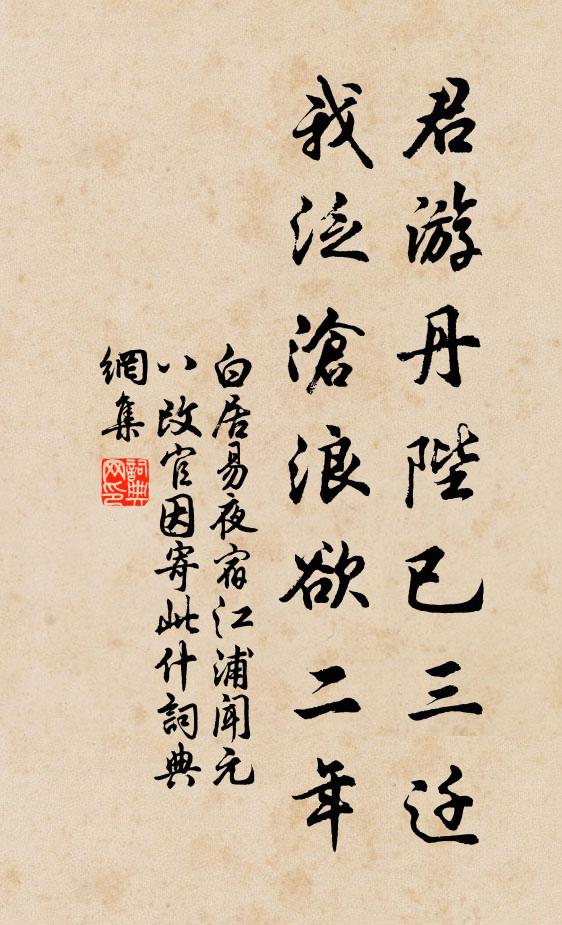 君游丹陛已三迁
我泛滄浪欲二年
白居易夜宿江浦聞元
八改官因寄此什詞典
網集
詞典网印